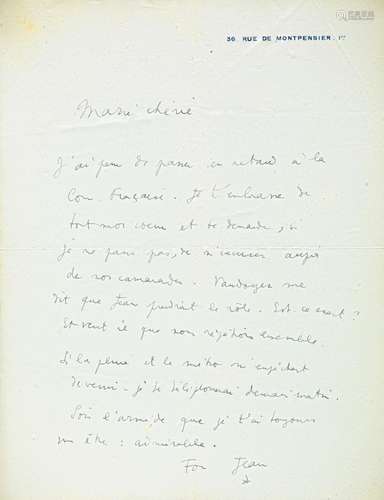 36 RUE DE MONTPENSIER. 1er
Marie chérie
J'ai peur de passer en retard à la
Com. Française. Je t'embrasse de
tout mon coeur et te demande, si
je ne passe pas, de m'excuser auprès
de nos camarades. Vaudoyer me
dit que Jean prendrait le rôle. Est-ce exact ?
Et veut-il que nous répétions ensemble.
Si la pluie et le métro m'empêchent
de venir - je te téléphonerai demain matin.
Sois l'armide que je t'ai toujours
vu être : admirable.
Ton Jean